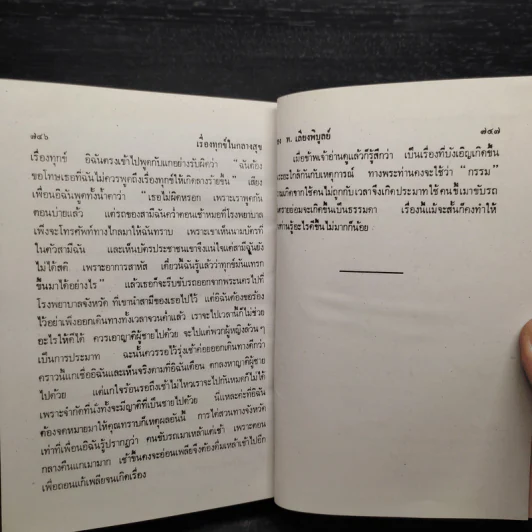 ๗๔๖
เรื่องทุกข์ในกลางสุข
เรื่องทุกข์ อิฉันตรงเข้าไปพูดกับแกอย่างรับผิดว่า “ฉันต้อง
ขอโทษเธอที่ฉันไม่ควรพูดถึงเรื่องทุกข์ให้เกิดลางร้ายขึ้น” เสียง
เพื่อนอิฉันพูดทั้งน้ำตาว่า “เธอไม่ผิดหรอก เพราะเราพูดกัน
ตอนบ่ายแล้ว แต่รถของสามีฉันคว่ำตอนเช้าหมอที่โรงพยาบาล
เพิ่งจะโทรศัพท์ทางไกลมาให้ฉันทราบ เพราะเขาเห็นนามบัตรที่
ในตัวสามีฉัน และเห็นบัตรประชาชนเขาจึงแน่ใจแต่สามีฉันยัง
ไม่ได้สติ เพราะอาการสาหัส เดี๋ยวนี้ฉันรู้แล้วว่าทุกข์มันแทรก
ขึ้นมาได้อย่างไร” แล้วเธอก็รีบขับรถออกจากพระนครไปที่
โรงพยาบาลจังหวัด ที่เขานำสามีของเธอไปไว้ แต่อิฉันต้องขอร้อง
ไว้อย่าเพิ่งออกเดินทางทั้งเวลาจวนค่ำแล้ว เราจะไปเวลานี้ก็ไม่ช่วย
อะไรให้ดีได้ ควรเอาญาติผู้ชายไปด้วย จะไปแต่พวกผู้หญิงล้วนๆ
เป็นการประมาท ฉะนั้นควรรอไว้รุ่งเช้าค่อยออกเดินทางดีกว่า
คราวนี้แกเชื่ออิฉันและเห็นจริงตามที่อิฉันเตือน ตกลงหาญาติผู้ชาย
ไปด้วย แต่แกใจร้อนรอถึงเช้าไม่ไหวเราจะไปกันหมดก็ไม่ได้
เพราะจำกัดที่นั่งทั้งจะมีญาติที่เป็นชายไปด้วย นี่แหละค่ะที่อิฉัน
ต้องจดหมายมาให้คุณทราบก็เหตุผลอันนี้ การไต่สวนทางจังหวัด
เท่าที่เพื่อนอิฉันรู้ปรากฏว่า คนขับรถเมาเหล้าแต่เช้า เพราะตอน
กลางคืนแกเมามาก เช้าขึ้นคงจะอ่อนเพลียจึงต้องดื่มเหล้าเข้าไปอีก
เพื่อถอนแก้เพลียจนเกิดเรื่อง
ท. เลียงพิบูลย์
๗๔๗
เมื่อข้าพเจ้าอ่านดูแล้วก็รู้สึกว่า เป็นเรื่องที่บังเอิญเกิดขึ้น
และใกล้กันกับเหตุการณ์ ทางพระท่านคงจะใช้ว่า “กรรม”
ความเกิดจากใช้คนไม่ถูกกับเวลาจึงเกิดประมาทใช้คนขี้เมาขับรถ
ย่อมจะเกิดขึ้นเป็นธรรมดา เรื่องนี้แม้จะสั้นก็คงทำให้
ท่านรู้อะไรดีขึ้นไม่มากก็น้อย